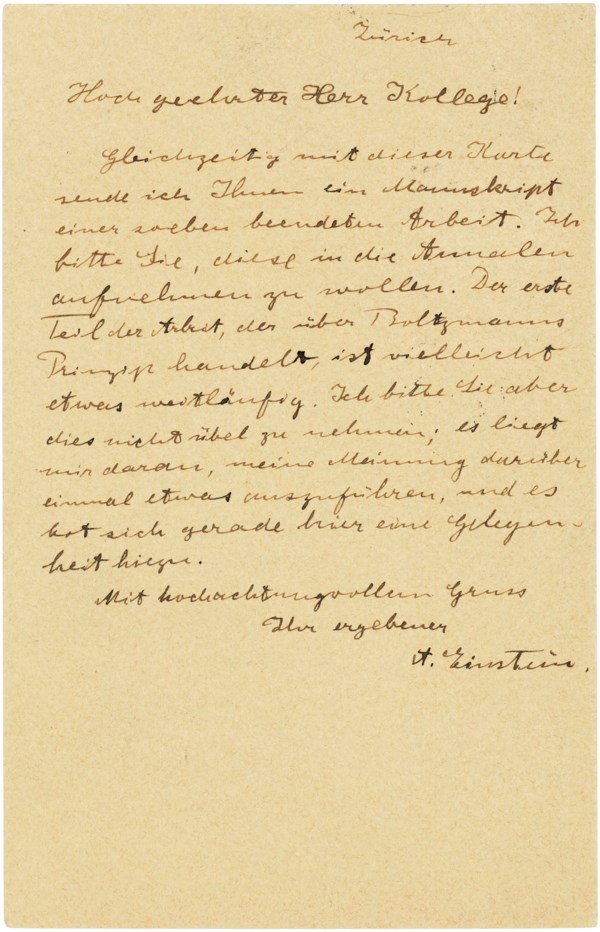 Zürich
Hoch geehrter Herr Kollege!
Gleichzeitig mit dieser Karte
sende ich Ihnen ein Manuskript
einer soeben beendeten Arbeit. Ich
bitte Sie, diese in die Annalen
aufnehmen zu wollen. Der erste
Teil der Arbeit, der über Boltzmanns
Prinzip handelt, ist vielleicht
etwas weitläufig. Ich bitte Sie aber
dies nicht übel zu nehmen; es liegt
mir daran, meine Meinung darüber
einmal etwas auszuführen, und es
bot sich gerade hier eine Gelegen-
heit hiezu.
Mit hochachtungsvollem Gruss
Ihr ergebener
A. Einstein.